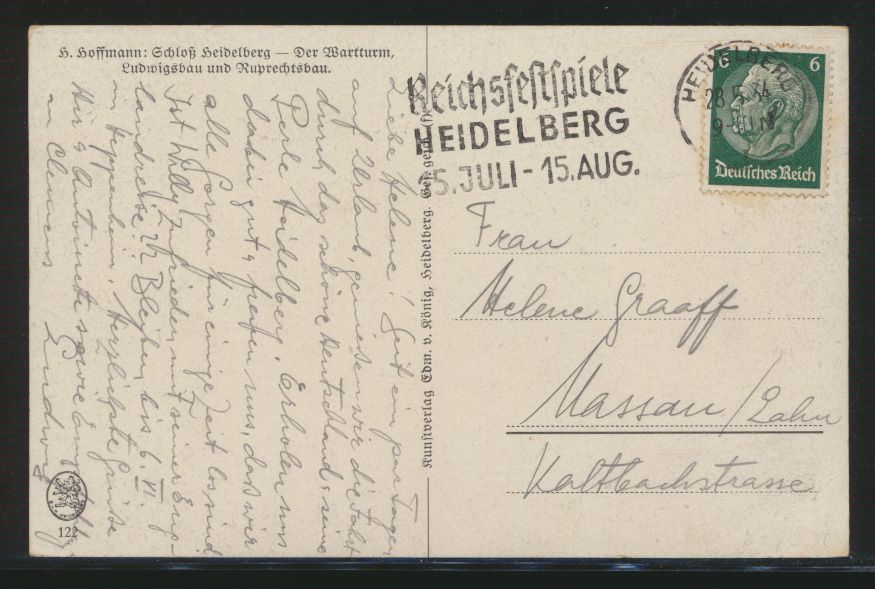 H. Hoffmann: Schloß Heidelberg — Der Wartturm,
Ludwigsbau und Ruprechtsbau.
Liebe Helene! Seit ein par Tagen
auf Urlaub, geniesen wir die Fahrt
durch das schöne Deutschland u seine
Perle Heidelberg. Erholen uns
dabei gut u freuen uns, daß wir
alle Sorgen für einige Zeit los sind
Ist Willy zufrieden mit seiner
landreise? Bleiben bis 6. VI.
in Heppenheim. Herzlichste Grüsse
Antoinette sowie
an Clemens Ludwig
122
Kunstverlag Edm. v. König, Heidelberg.
Reichsfestspiele
HEIDELBERG
15. JULI - 15. AUG.
HEIDELBERG
28.5.34
6 6
Deutsches Reich
Frau
Helene Graaff
Nassau/Lahn
Kaltbachstrasse